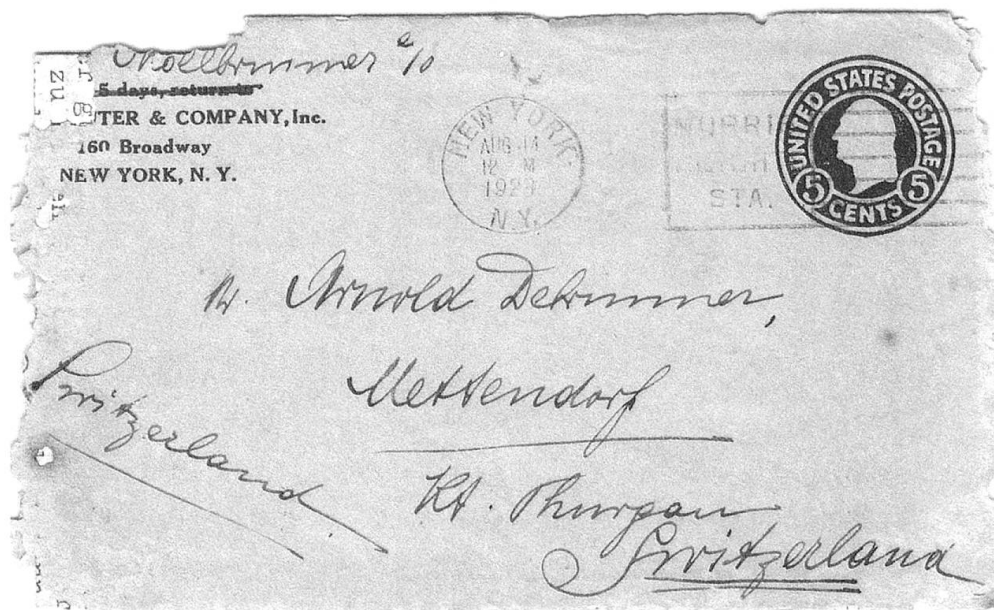 c/o
5 days, return to
UTER & COMPANY, Inc.
160 Broadway
NEW YORK, N. Y.
NEW YORK
AUG 14
12 M
1929
N.Y.
STA.
UNITED STATES POSTAGE
5 CENTS 5
Hr. Arnold Debrunner,
Mettendorf
Kt. Thurgau
Switzerland
Switzerland
zu